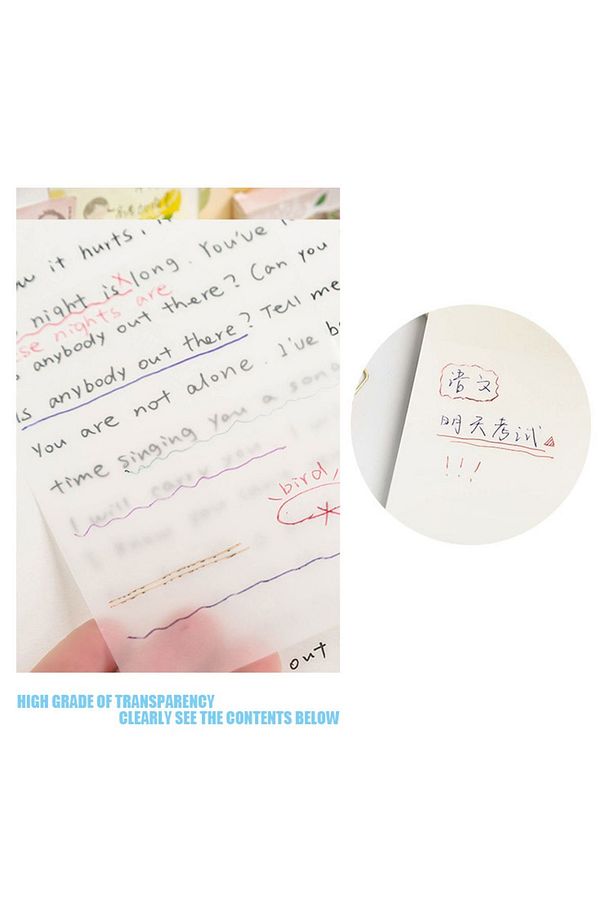 it hurts
night is long. You've
these nights are
anybody out there? Can you
is anybody out there? Tell me
You are not alone. I've b
time singing you a song
I will carry you
I know you
bird
out
语文
明天考试
!!!
HIGH GRADE OF TRANSPARENCY
CLEARLY SEE THE CONTENTS BELOW